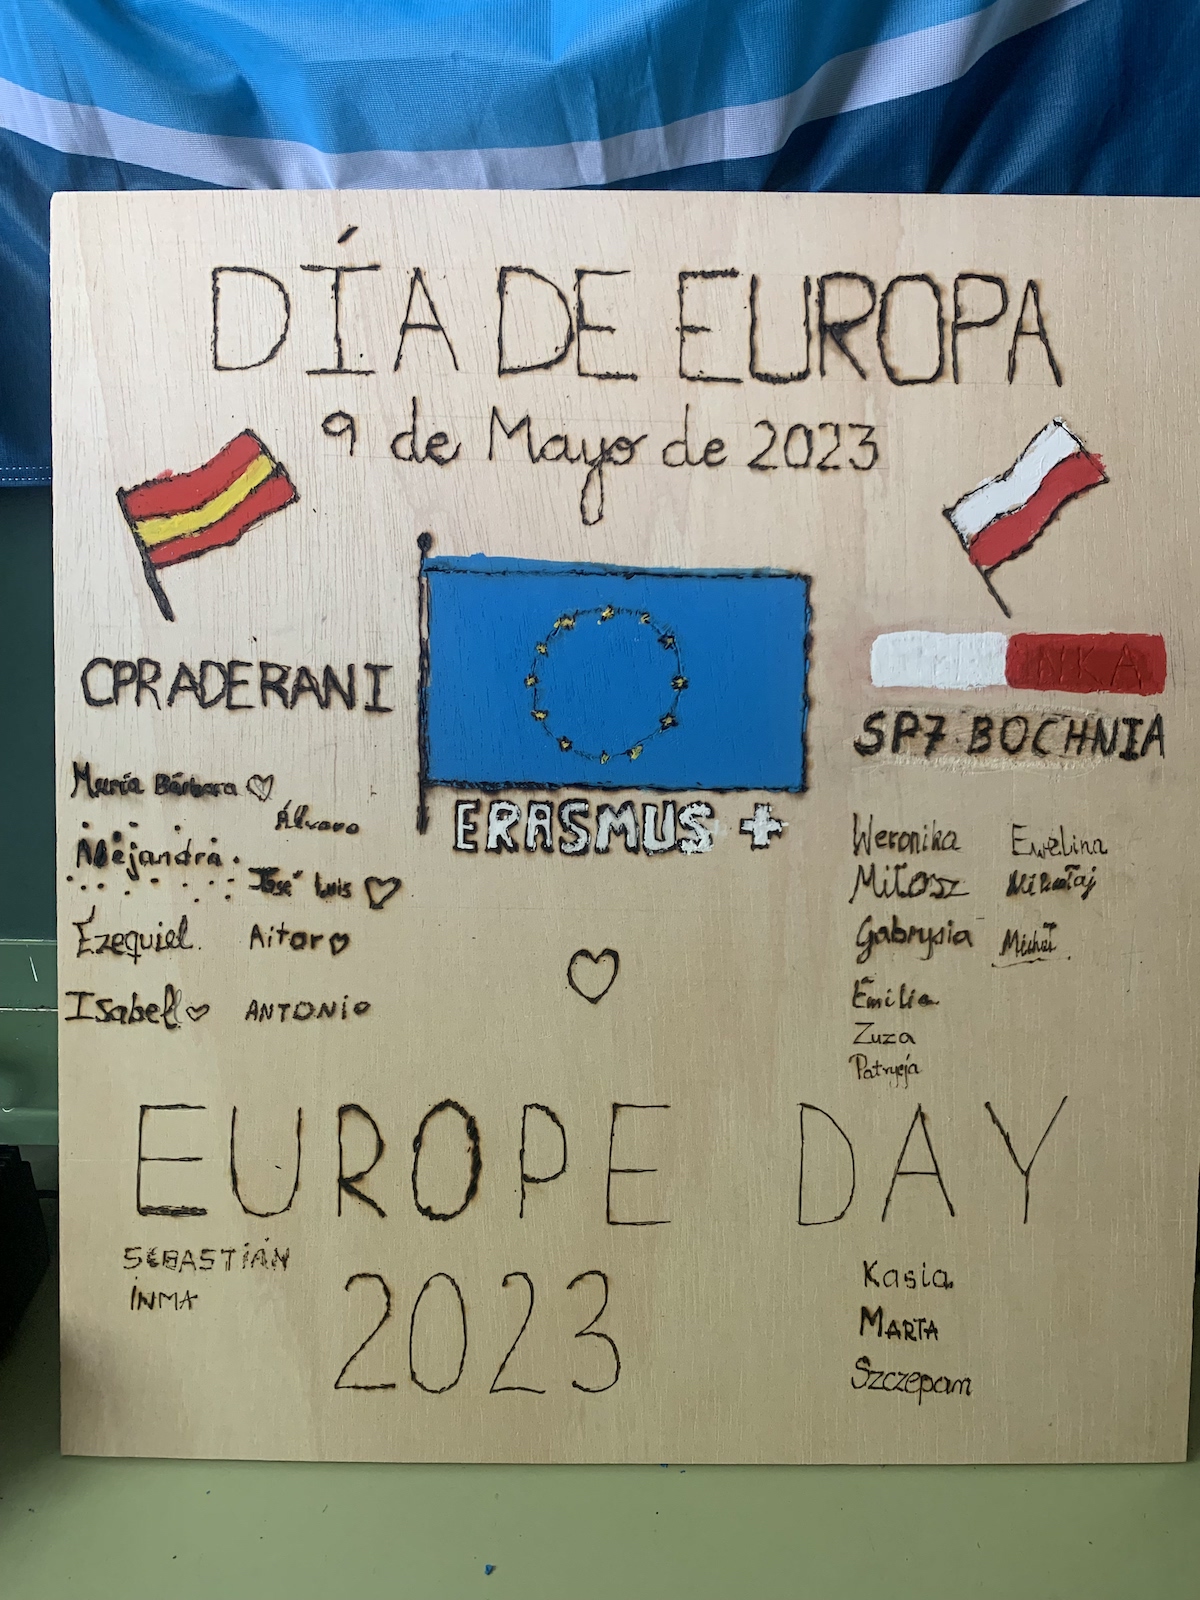 DÍA DE EUROPA
9 de Mayo de 2023
CPRADERANI
NKA
SP7 BOCHNIA
ERASMUS +
María Bárbara
Álvaro
Alejandra
José Luis
Ezequiel
Aitor
Isabel
ANTONIO
Weronika
Ewelina
Miłosz
Mikołaj
Gabrysia
Michał
Emilia
Zuza
Patrycja
EUROPE DAY
2023
SEBASTIÁN
INMA
Kasia
MARTA
Szczepan